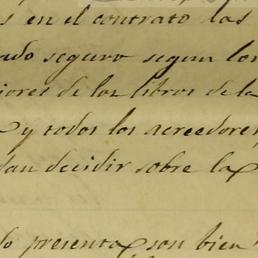 s en el contrato las
ado seguro segun los
iores de los libros de la
y todos los acreedores
dan decidir sobre la
lo presenta, son bien